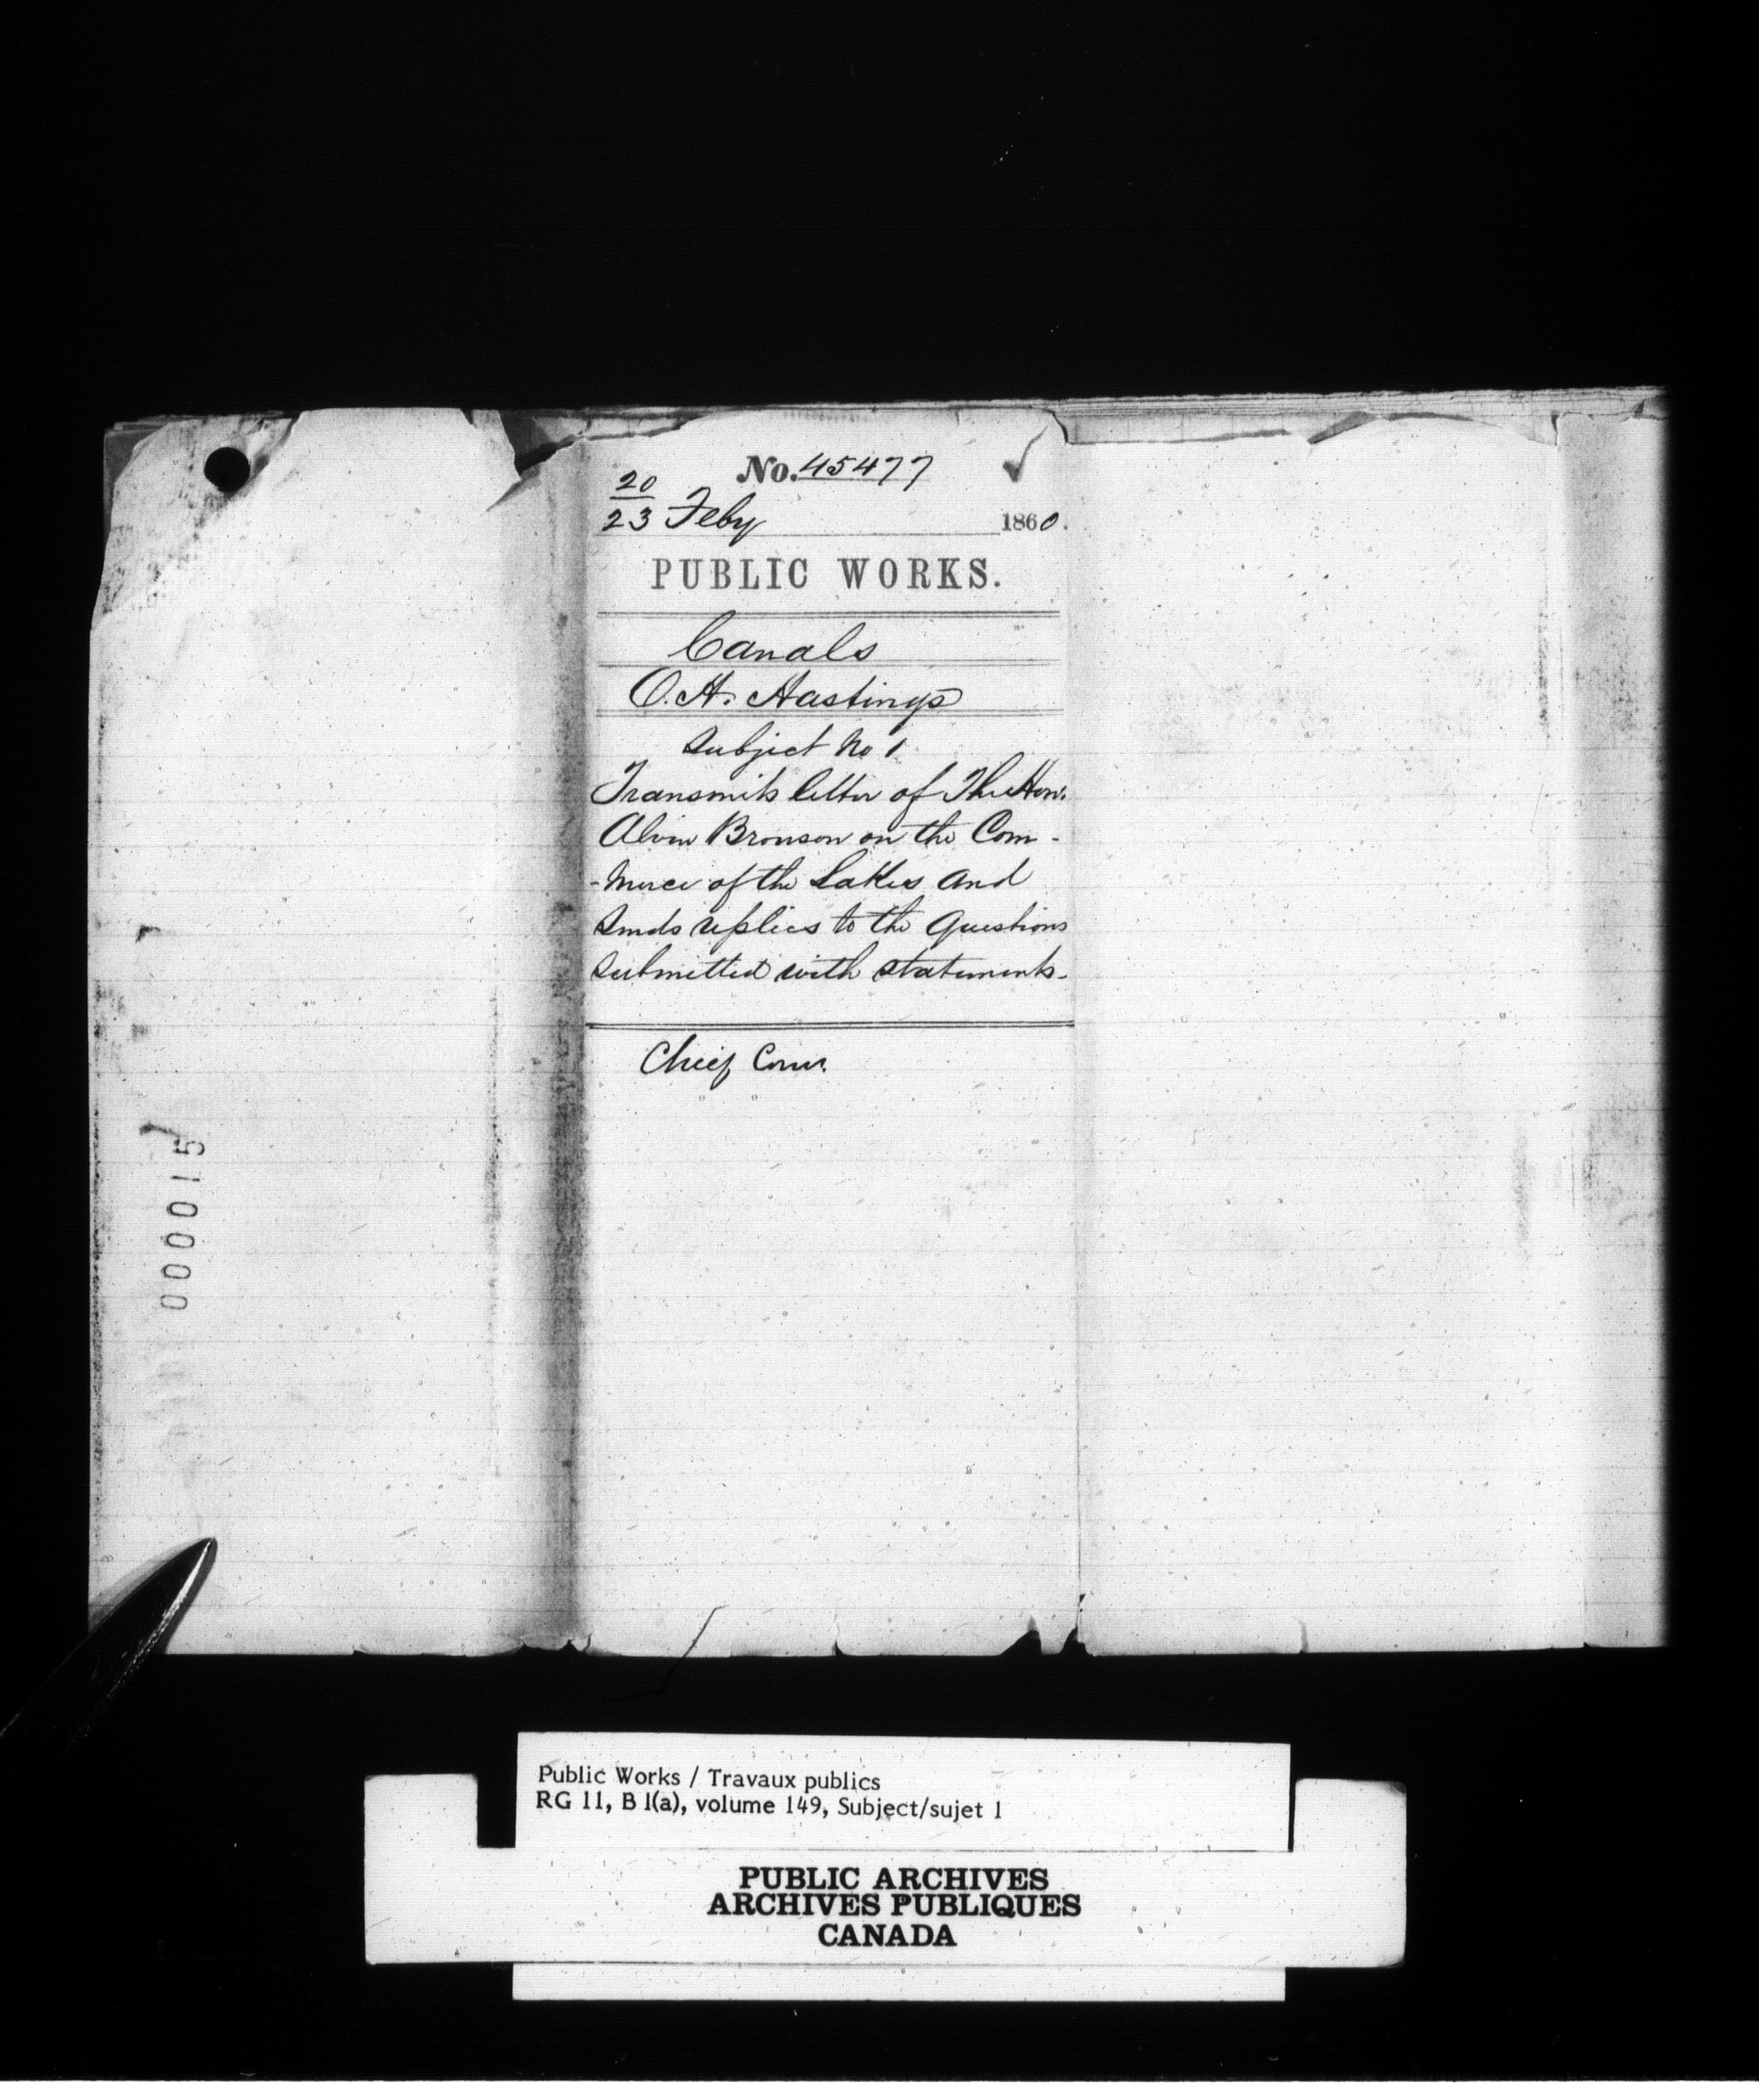 No. 45477 ✓
20
23 Feby 1860.
PUBLIC WORKS.
Canals
O. H. Hastings
Subject No 1
Transmits letter of The Hon.
Alvin Bronson on the Com-
-merce of the Lakes and
Sends replies to the questions
submitted with statements-
Chief Comr.
000015
Public Works / Travaux publics
RG 11, B 1(a), volume 149, Subject/sujet 1
PUBLIC ARCHIVES
ARCHIVES PUBLIQUES
CANADA